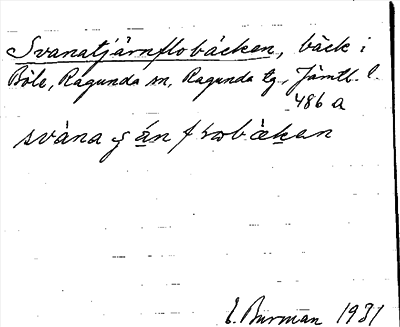 Svanatjärnflobäcken, bäck i
Böle, Ragunda sn, Ragunda tg., Jämtl. l.
486 a
svána
E. Burman 1931